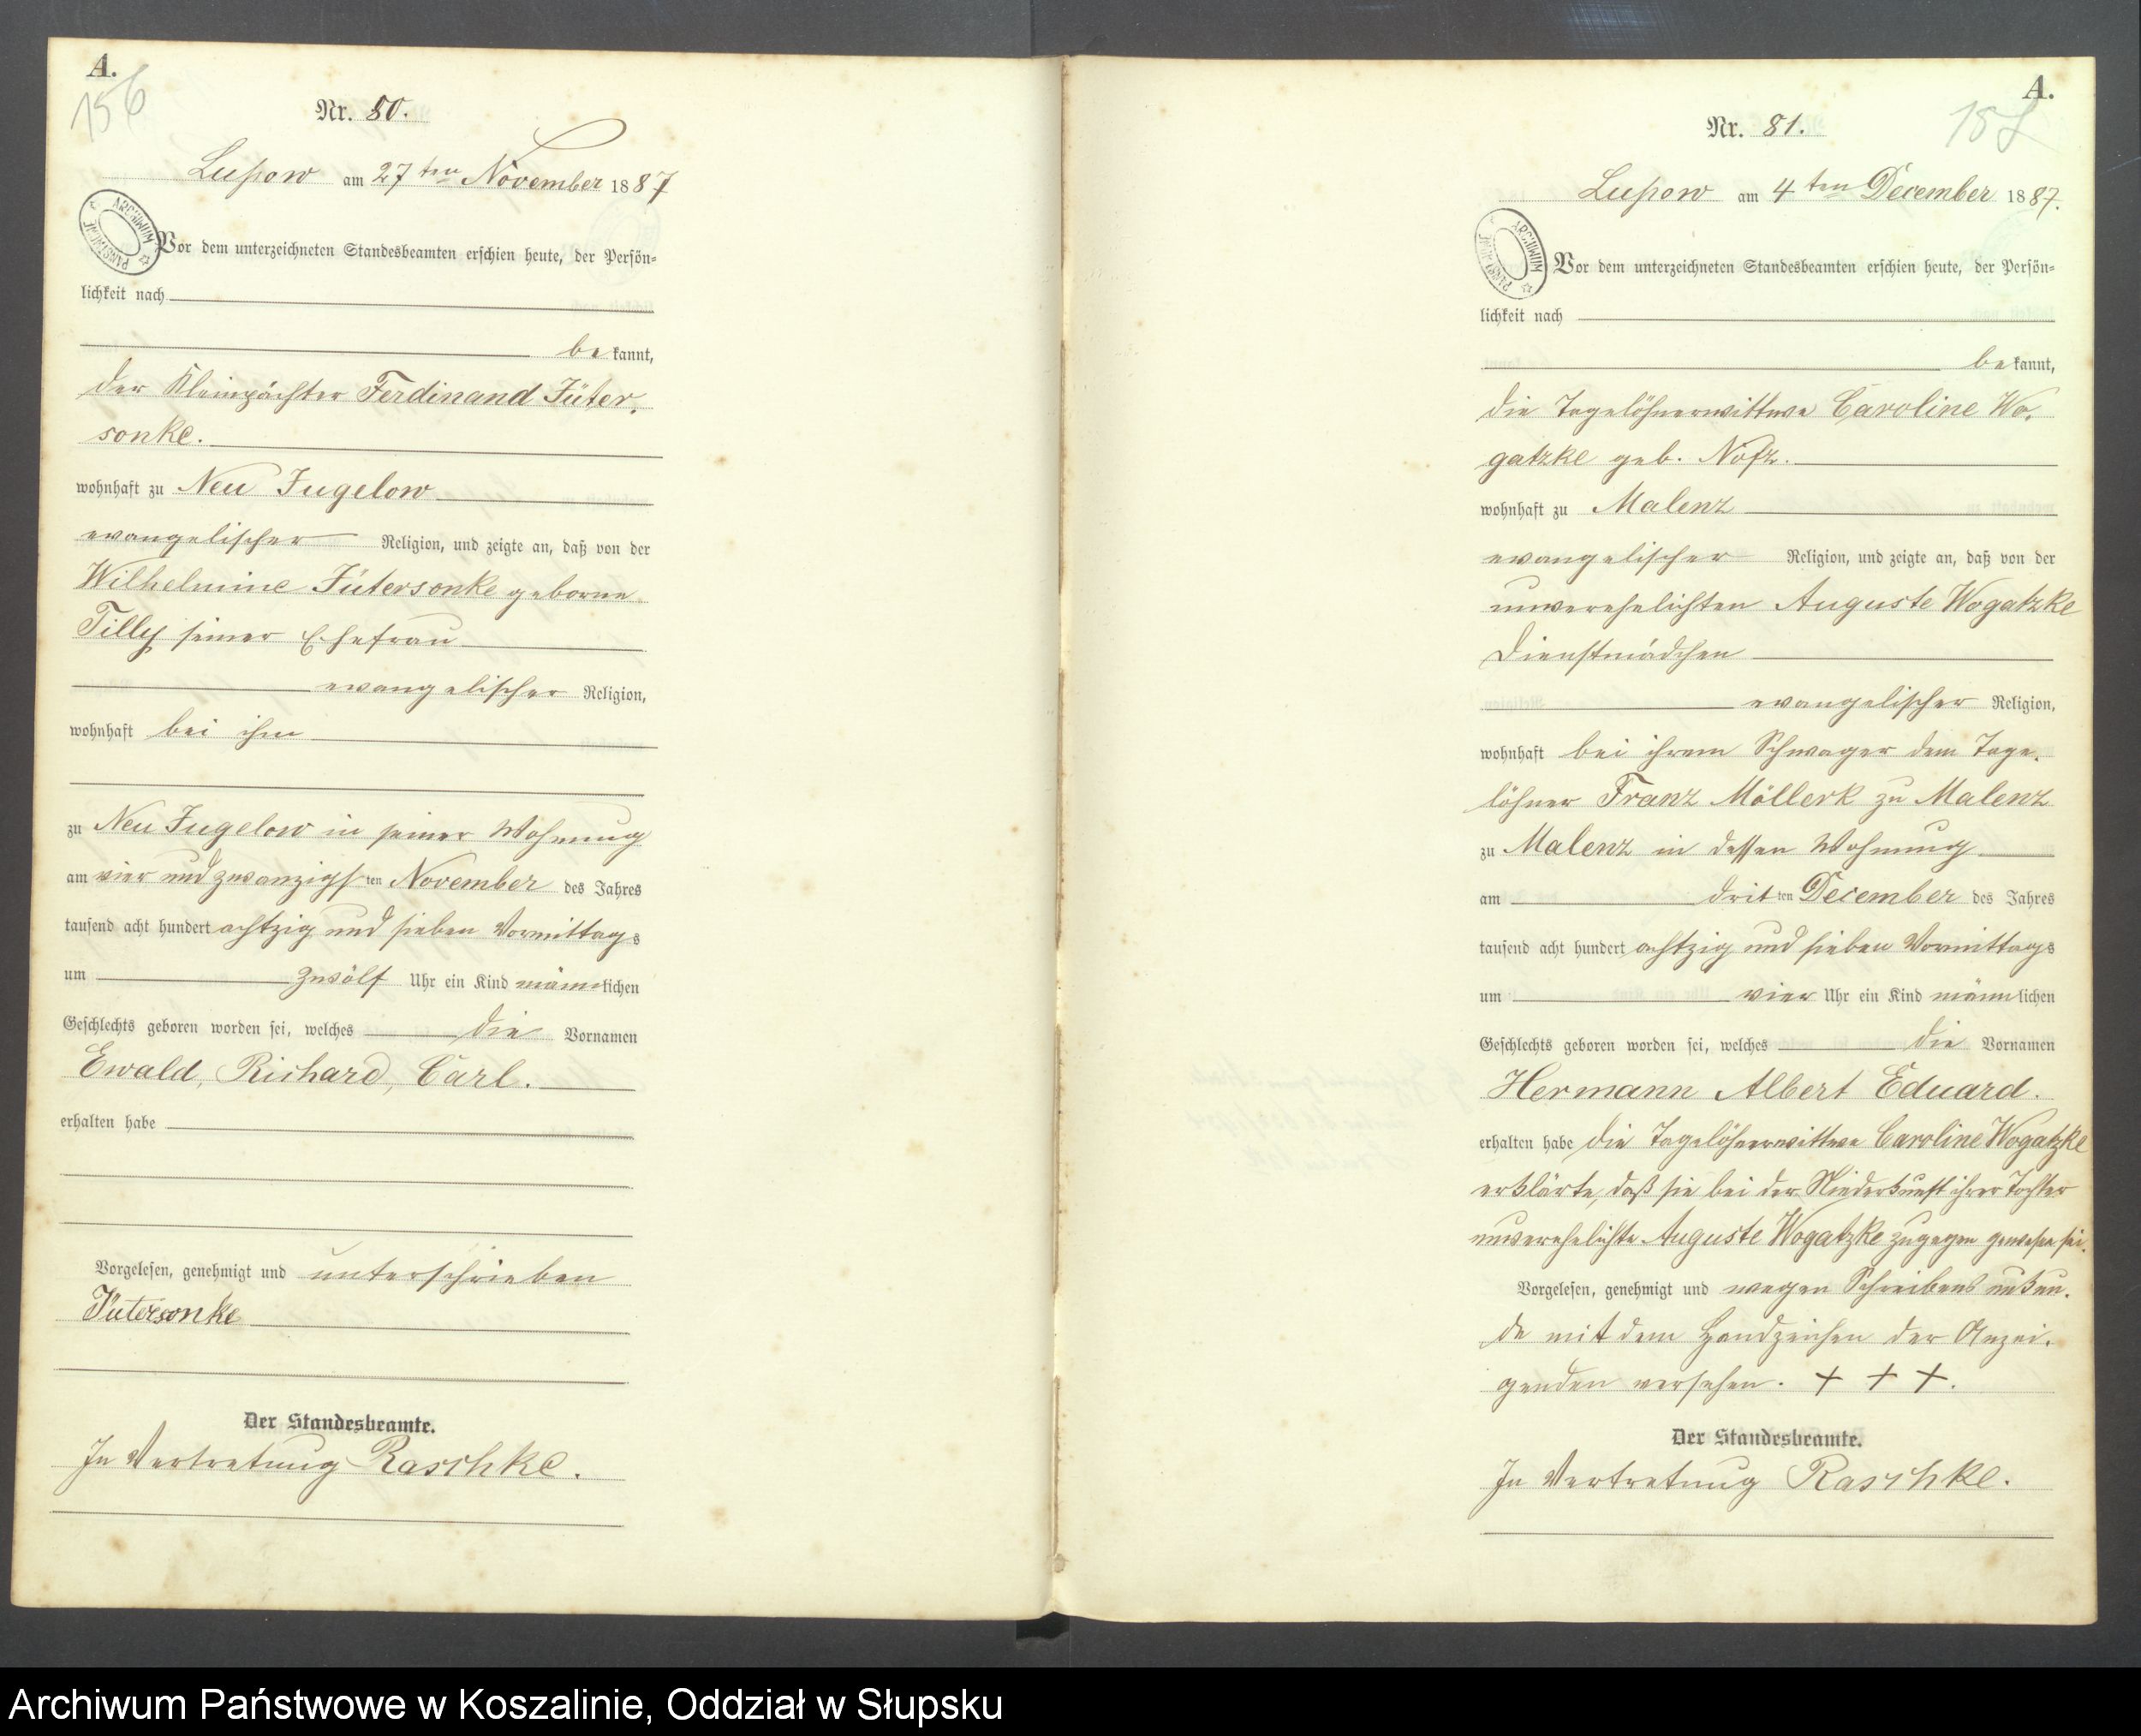 A.
156
Nr. 80.
Lupow am 27ten November 1887
ARCHIWUM PAŃSTWOWE
Vor dem unterzeichneten Standesbeamten erschien heute, der Persön-
lichkeit nach
bekannt,
der Kleinpächter Ferdinand Jüter-
sonke.
wohnhaft zu Neu Jugelow
evangelischer Religion, und zeigte an, daß von der
Wilhelmine Jütersonke geborne
Tilly seiner Ehefrau
evangelischer Religion,
wohnhaft bei ihm
zu Neu Jugelow in seiner Wohnung
am vier und zwanzigsten November des Jahres
tausend acht hundert achtzig und sieben Vormittags
um zwölf Uhr ein Kind männlichen
Geschlechts geboren worden sei, welches die Vornamen
Ewald, Richard, Carl.
erhalten habe
Vorgelesen, genehmigt und unterschrieben
Jütersonke
Der Standesbeamte.
In Vertretung Raschke.
A.
Nr. 81.
Lupow am 4ten December 1887.
ARCHIWUM PAŃSTWOWE
Vor dem unterzeichneten Standesbeamten erschien heute, der Persön-
lichkeit nach
bekannt,
die Tagelöhnerwittwe Caroline Wo-
gatzke geb. Nofz.
wohnhaft zu Malenz
evangelischer Religion, und zeigte an, daß von der
unverehelichten Auguste Wogatzke
Dienstmädchen
evangelischer Religion,
wohnhaft bei ihrem Schwager dem Tage-
löhner Franz Möllerk zu Malenz
zu Malenz in dessen Wohnung
am dritten December des Jahres
tausend acht hundert achtzig und sieben Vormittags
um vier Uhr ein Kind männlichen
Geschlechts geboren worden sei, welches die Vornamen
Hermann Albert Eduard.
erhalten habe die Tagelöhnerwittwe Caroline Wogatzke
erklärte, daß sie bei der Niederkunft ihrer Tochter
unverehelichte Auguste Wogatzke zugegen gewesen sei.
Vorgelesen, genehmigt und wegen Schreibens unkun-
de mit dem Handzeichen der Anzei-
genden versehen. + + +.
Der Standesbeamte.
In Vertretung Raschke.
Archiwum Państwowe w Koszalinie, Oddział w Słupsku